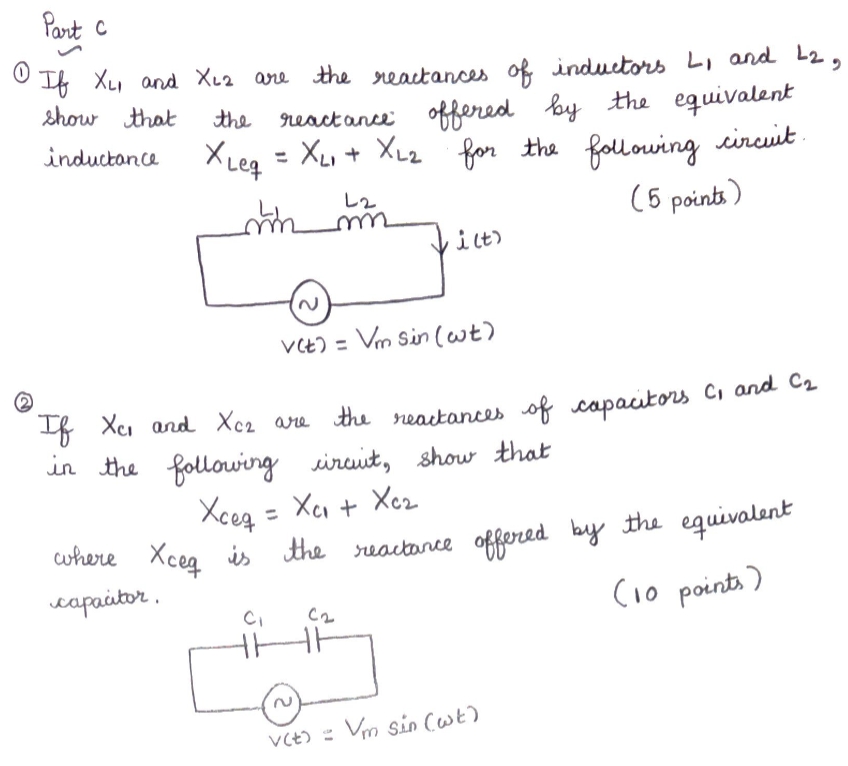 Part C
① If XL1 and XL2 are the reactances of inductors L1 and L2,
show that the reactance offered by the equivalent
inductance XLeq = XL1 + XL2 for the following circuit.
(5 points)
L1 L2
i(t)
~
V(t) = Vm sin(ωt)
②
If XC1 and XC2 are the reactances of capacitors C1 and C2
in the following circuit, show that
XCeq = XC1 + XC2
where XCeq is the reactance offered by the equivalent
capacitor. (10 points)
C1 C2
~
V(t) = Vm sin(ωt)